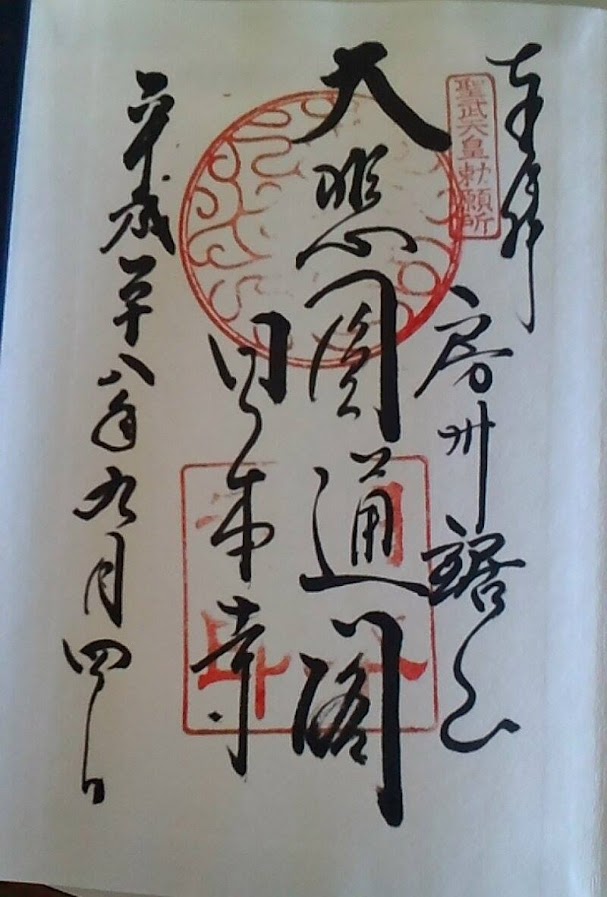 奉拝
聖武天皇勅願所
房州鋸山
大悲圓通閣
日本寺
平成二十八年九月四日